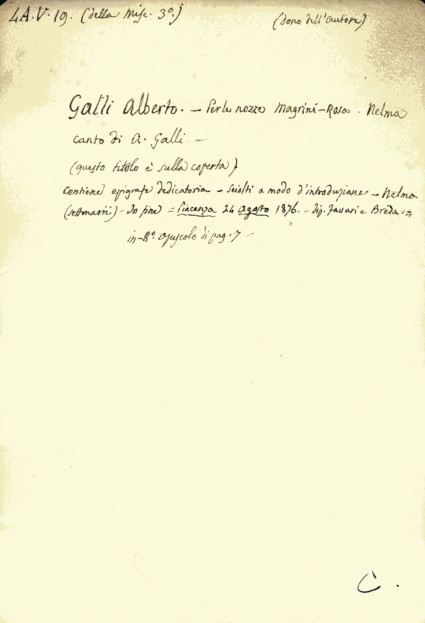 4A.V.19. (della Misc. 3ª.)
(dono dell'autore)
Galli Alberto. — Per le nozze Magrini-Rosa. Nelma
canto di A. Galli. —
(questo titolo è sulla coperta)
contiene epigrafe dedicatoria — sciolti a modo d'introduzione — Nelma
(settenarii) — In fine = 24 Agosto 1876. — tip. =
in-8º opuscolo di pag. 7 —
C.